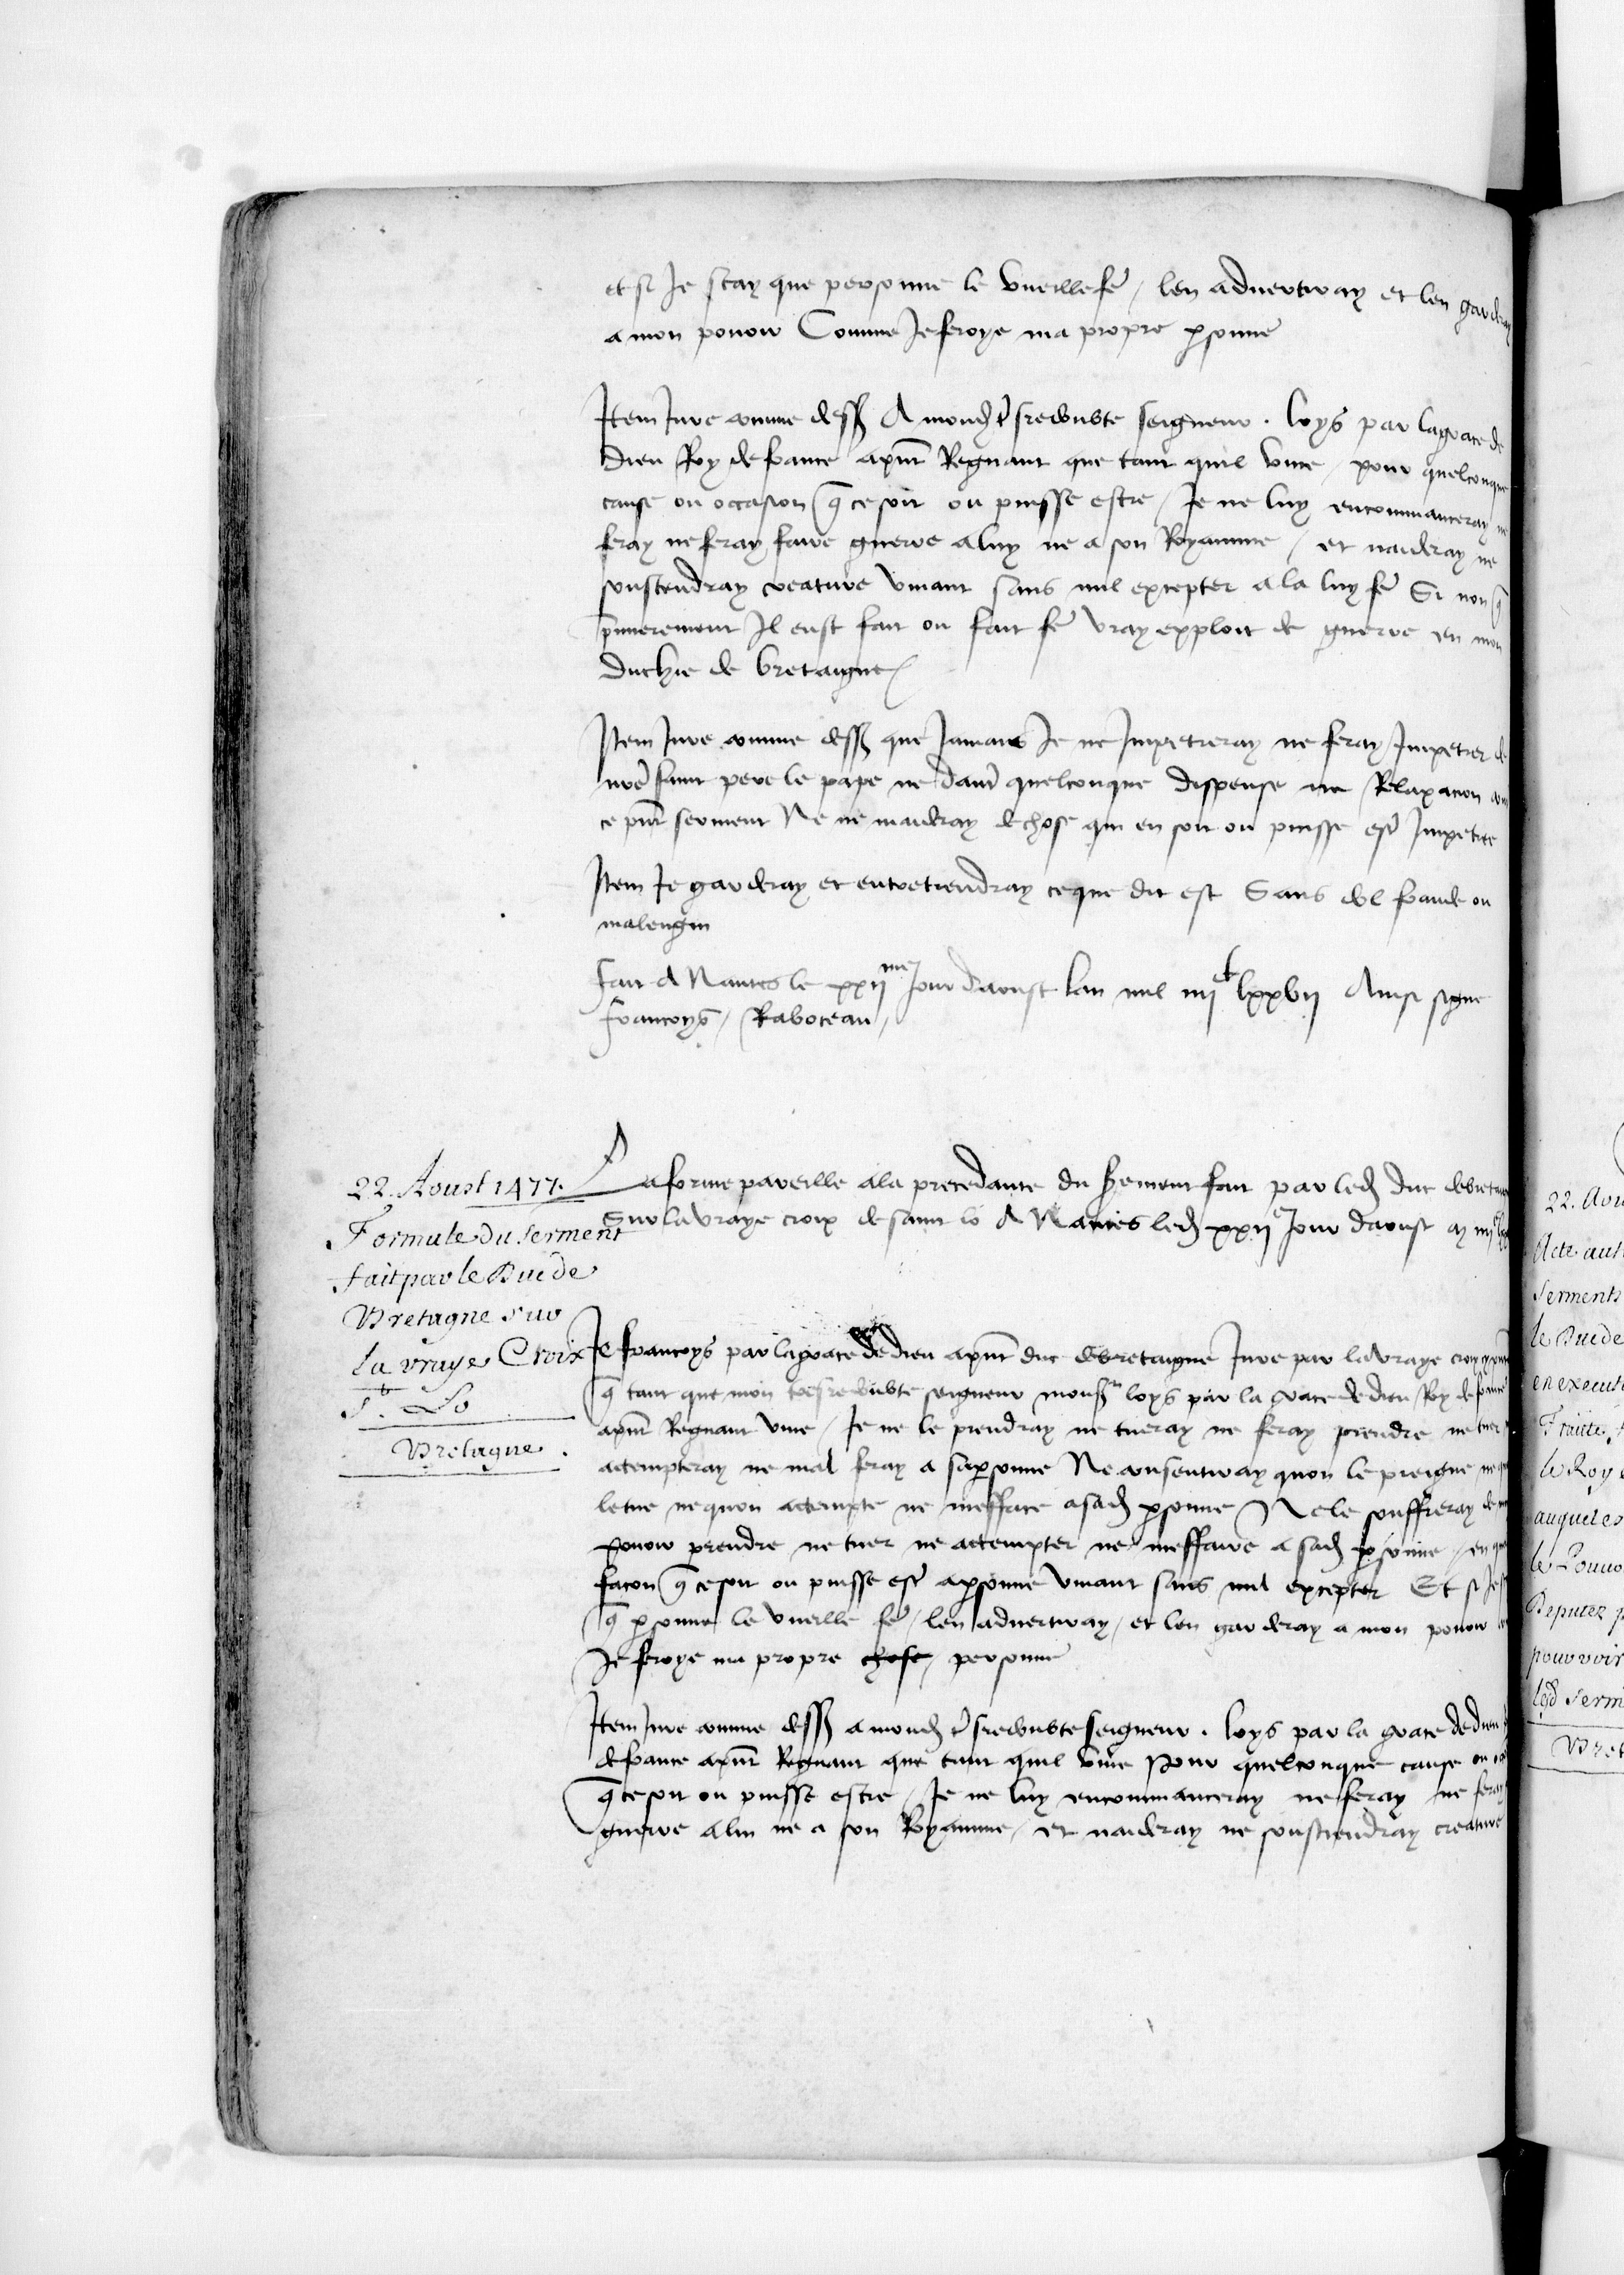 et si Je scay que personne le vueille fẽ / len advertiray et len garderay
a mon pouoir Comme Je feroye ma propre psonne
Item Jure comme dessꝰ A mond tsredoubte seigneur . loys par la grace de
dieu Roy de france apñt Regnant que tant quil vive / pour quelconque
cause ou occasion q̃ ce soit ou puisse estre / Je ne luy encommanceray ne
feray ne feray faire guerre a luy ne a son Royaume / et naideray ne
soustendray creature vivant sans nul excepter a la luy fẽ Si non q̃
pmierement Il eust fait ou fait fẽ vray exploit de guerre en mon
duchie de bretaigne
Item Jure comme dessꝰ que Jamais Je ne Impetreray ne feray Impetrer de
nrẽ saint pere le pape ne dautr̃ quelconque dispense ne Relaxacion
ce pñt serment Ne ne maideray de chose qui en soit ou puisse estr̃ Impetree
Item Je garderay et entretiendray ce que dit est Sans dol fraude ou
malengin
fait A Nantes le xxij me Jour daoust lan mil iiij c lxxvij Ainsi signe
francoys / Raboceau /
La forme pareille a la precedante du serement fait par led duc de bretaigne
Sur la vraye croix de saint lo A Nantes led xxij e Jour daoust
22. Aoust 1477.
Formule du serment
fait par le Duc de
Bretagne sur
la vraye Croix
St. Lo
Bretagne.
Je francoys par la grace de dieu apñt duc de bretaigne Jure par la vraye croix
q̃ tant que mon tresredoubte seigneur monsr loys par la grace de dieu Roy de france
apñt Regnant vive / Je ne le prendray ne tueray ne feray prendre ne tuer
attempteray ne mal feray a sa psonne Ne consentiray quon le preigne
le tue ne quon attempte ne mefface a sad psonne Ne le souffreray de
pouoir prendre ne tuer ne attempter ne meffaire a sad psonne / en
facon q̃ ce soit ou puisse estr̃ a psonne vivant sans nul excepter Et si Je
q̃ psonne le vueille fẽ / len advertiray / et len garderay a mon pouoir
Je feroye ma propre chose / personne
Item Jure comme dessꝰ a mond tsredoubte seigneur . loys par la grace de dieu
de france apñt Regnant que tant quil vive Pour quelconque cause ou
q̃ ce soit ou puisse estre / Je ne luy encommanceray ne feray ne feray
guerre a lui ne a son Royaume / et naideray ne soustiendray creature
22. Aou
Acte aut
serments
le Duc de
en execut
Traitté
le Roy
auquel es
le Pouvo
Deputez p
pour voir
led serm
Bret